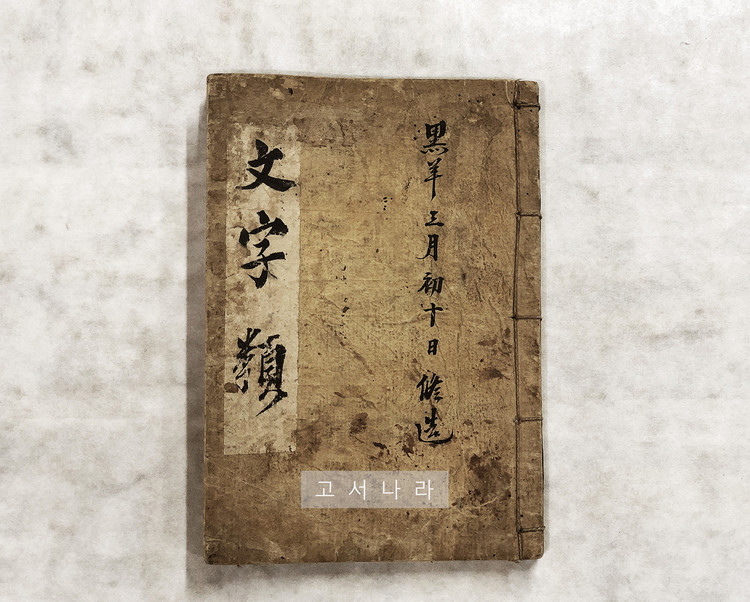 黑羊三月初十日修造
文字類
고서나라